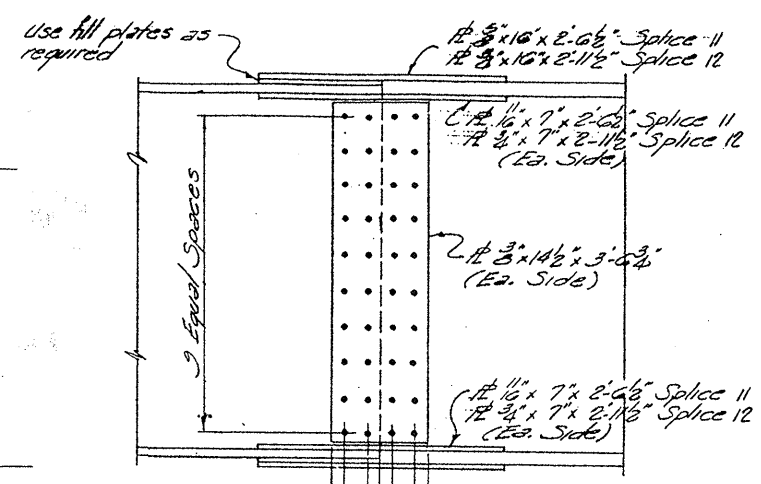 Use fill plates as
required
PL 5/8" x 16" x 2'-6 1/2" Splice 11
PL 5/8" x 16" x 2'-11 1/2" Splice 12
PL 11/16" x 7" x 2'-6 1/2" Splice 11
PL 3/4" x 7" x 2'-11 1/2" Splice 12
(Ea. Side)
9 Equal Spaces
PL 3/8" x 14 1/2" x 3'-6 3/4"
(Ea. Side)
PL 11/16" x 7" x 2'-6 1/2" Splice 11
PL 3/4" x 7" x 2'-11 1/2" Splice 12
(Ea. Side)